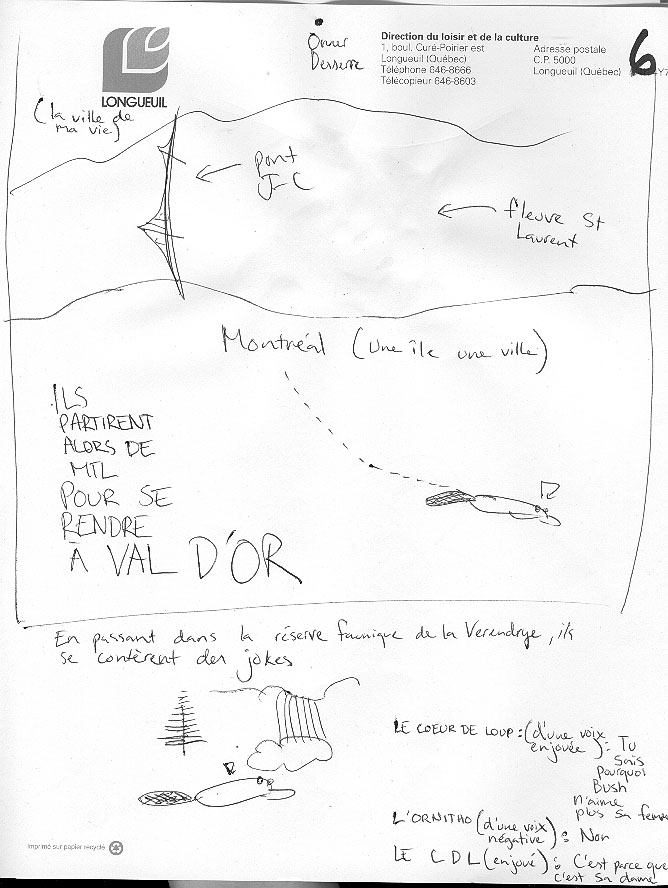 Omer
Desserre
Direction du loisir et de la culture
1, boul. Curé-Poirier est
Longueuil (Québec)
Téléphone 646-8666
Télécopieur 646-8603
Adresse postale
C.P. 5000
Longueuil (Québec)
6
LONGUEUIL
(la ville de
ma vie)
pont
J-C
fleuve St
Laurent
Montréal (une île une ville)
ILS
PARTIRENT
ALORS DE
MTL
POUR SE
RENDRE
À VAL D'OR
En passant dans la réserve faunique de la Verendrye, ils
se contèrent des jokes
LE COEUR DE LOUP : (d'une voix
enjouée) : Tu
sais
pourquoi
Bush
n'aime
plus sa femme
L'ORNITHO (d'une voix
négative) : Non
LE CDL (enjoué) : C'est parce que
c'est sa dame
Imprimé sur papier recyclé